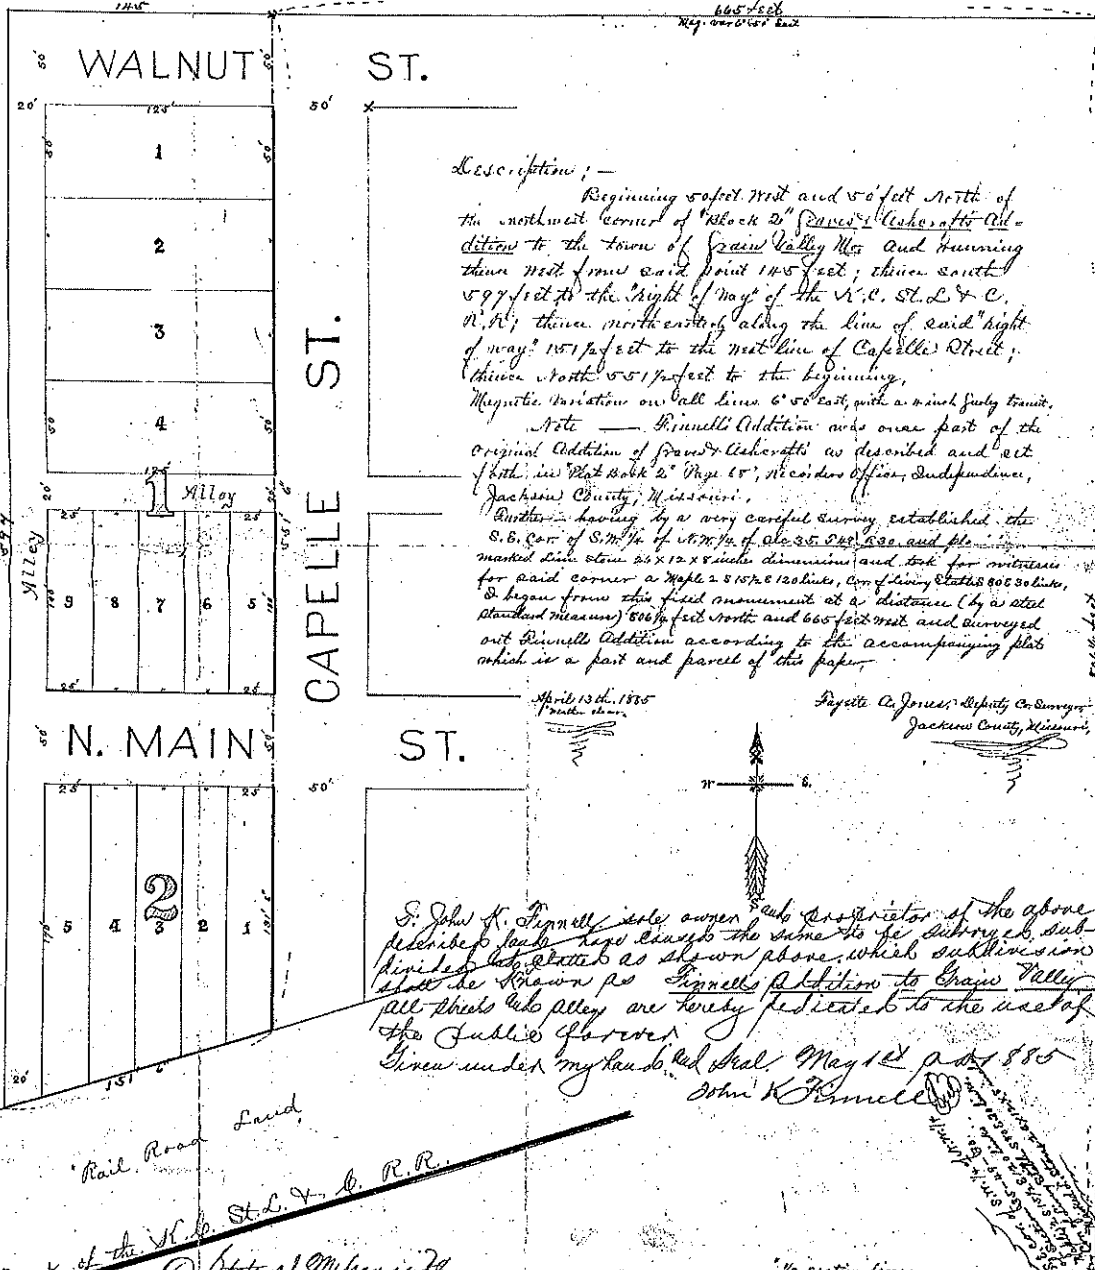 145
665 feet
Mag. var 6°50' East
WALNUT ST.
50'
50'
20'
125'
50'
1
50'
50'
2
3
4
50'
50'
125'
1
Alley
20'
20'
6"
551'
597
Alley
25'
25'
9 8 7 6 5
100'
100'
25'
25'
CAPELLE ST.
Description ; —
Beginning 50 feet West and 50 feet North of
the northwest corner of "Block 2" Graves & Ashcrafts Ad-
dition to the town of Grain Valley Mo, and running
thence West from said point 145 feet; thence south
597 feet to the "right of way" of the K.C. St. L & C.
R.R; thence northeasterly along the line of said "right
of way" 151 1/2 feet to the west line of Capelle Street;
thence North 551 1/2 feet to the beginning,
Magnetic Variation on all lines 6°50' east, with a 4 inch Gurley transit.
Note — Finnell's Addition was once part of the
original Addition of Graves & Ashcrafts as described and set
forth in "Plat Book 2" Page 65, Recorders Office, Independence,
Jackson County, Missouri.
Further — having by a very careful survey, established the
S.E. Cor. of S.W. 1/4 of N.W. 1/4 of Sec 35. T49. R30. and
marked Lime stone 24 x 12 x 8 inches dimensions and took for witnesses
for said corner a Maple
I began from this fixed monument at a distance (by a steel
standard measure) 506 1/2 feet North and 665 feet west and surveyed
out Finnells Addition according to the accompanying plat
which is a part and parcel of this paper,
April 13th, 1885
Fayette A. Jones, Deputy Co. Surveyor
Jackson County, Missouri,
50'
50'
N. MAIN ST.
50'
25'
25'
2
5 4 3 2 1
20'
151 6"
W S.
I, John K. Finnell, sole owner and proprietor of the above
described land have caused the same to be surveyed, sub-
divided and platted as shown above, which subdivision
shall be known as Finnells Addition to Grain Valley
all streets and alleys are hereby dedicated to the use of
the Public forever
Given under my hand and Seal. May 1st AD 1885
John K Finnell
Rail Road Land
of the K.C. St. L. & C. R.R.